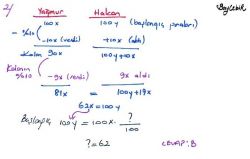 2/ Yağmur Hakan Baylebik
100x 100y (başlangıç paraları)
- %10 -10x (verdi) +10x (aldı)
Kalan 90x 100y+10x
Kalanın %10 -9x (verdi) 9x aldı
81x = 100y+19x
62x=100y
Başlangıç 100y = 100x · ?/100
?=62 CEVAP: B